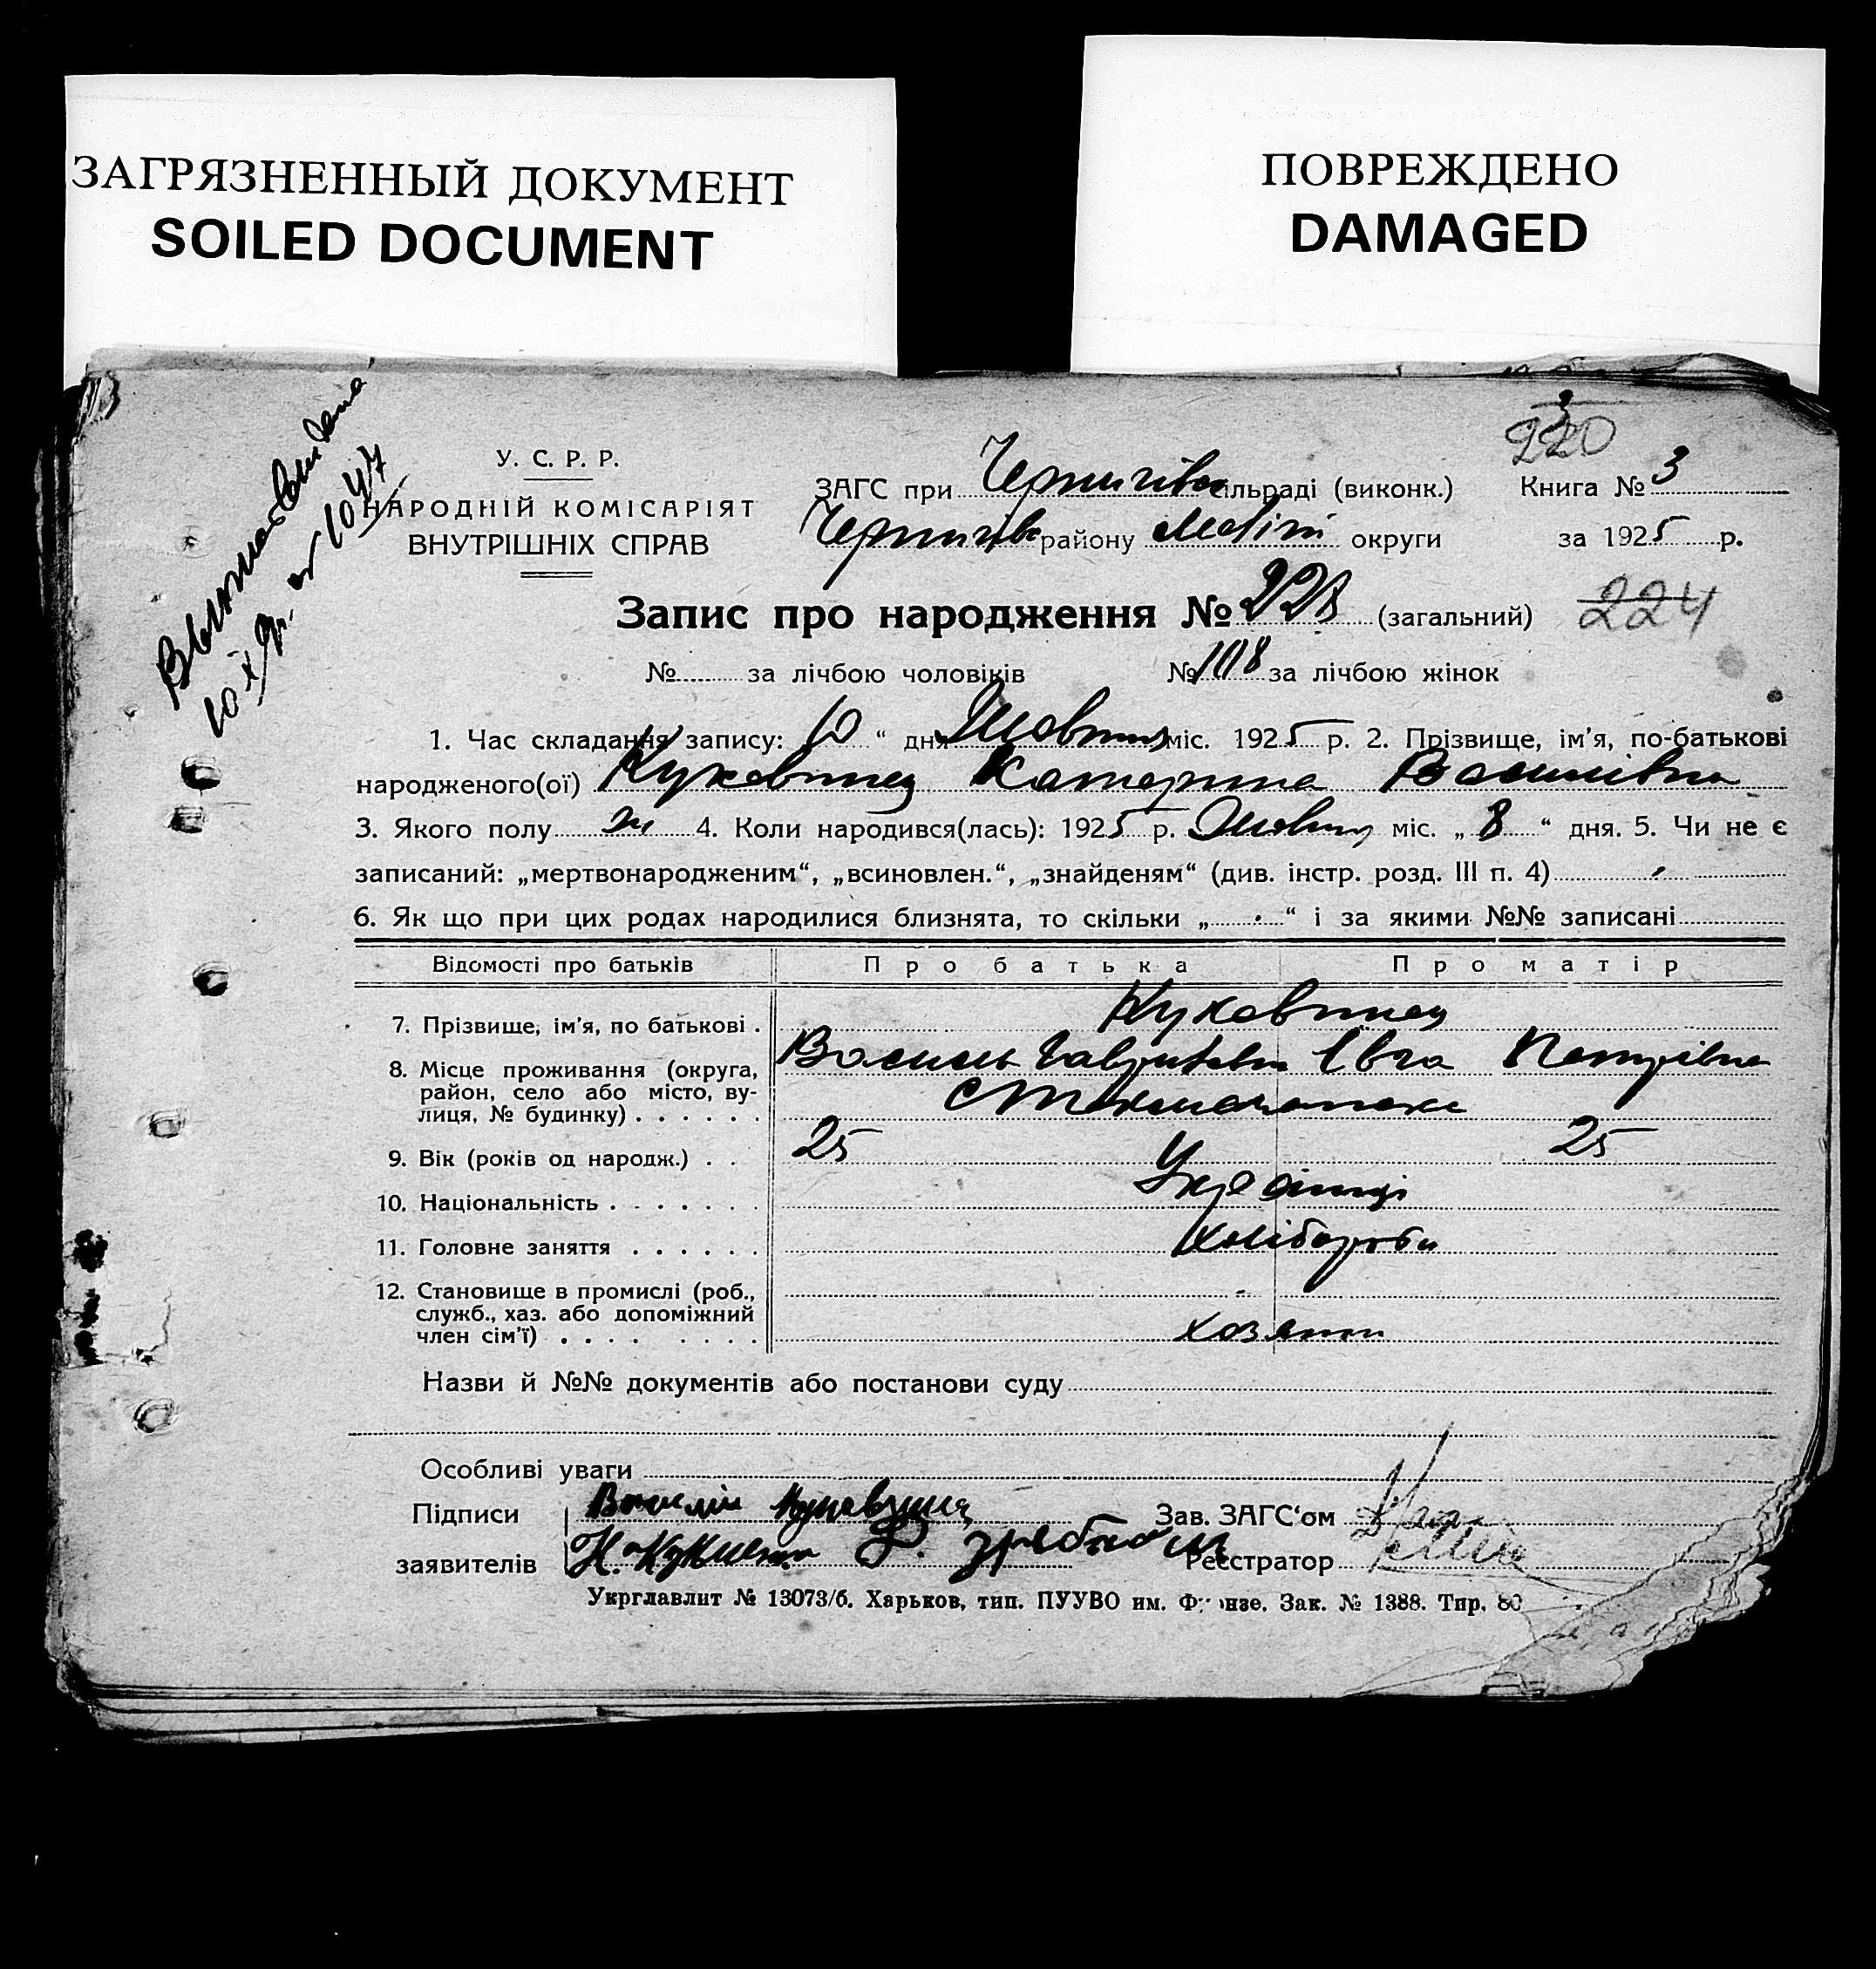 ЗАГРЯЗНЕННЫЙ ДОКУМЕНТ
SOILED DOCUMENT
ПОВРЕЖДЕНО
DAMAGED
220
У. С. Р. Р.
НАРОДНІЙ КОМІСАРІЯТ
ВНУТРІШНІХ СПРАВ
ЗАГС при Чернигівс сільраді (виконк.) Книга № 3
Чернигівс району Меліт округи за 1925 р.
Запис про народження № (загальний) 224
№ за лічбою чоловіків № 108 за лічбою жінок
1. Час складання запису: 10 “ дня Жовтня міс. 1925 р. 2. Прізвище, ім'я, по-батькові
народженого(ої) Куковинец Катерина Василівна
3. Якого полу ж 4. Коли народився(лась): 1925 р. Жовтня міс. „ 8 “ дня. 5. Чи не є
записаний: „мертвонародженим“, „всиновлен.“, „знайденям“ (див. інстр. розд. III п. 4)
6. Як що при цих родах народилися близнята, то скільки „ “ і за якими №№ записані
Відомості про батьків Про батька Про матір
7. Прізвище, ім'я, по батькові . Куковинец
8. Місце проживання (округа, Василь Гаврилович Євга Петрівна
район, село або місто, ву-
лиця, № будинку) . . . . . .
9. Вік (років од народж.) . . 25 25
10. Національність . . . . . . . Українці
11. Головне заняття . . . . . . Хлібороби
12. Становище в промислі (роб.,
служб., хаз. або допоміжний
член сім'ї) . . . . . . . . хозяини
Назви й №№ документів або постанови суду
Особливі уваги
Підписи Зав. ЗАГС‘ом
заявителів Реєстратор
Укрглавлит № 13073/б. Харьков, тип. ПУУВО им. Фрунзе. Зак. № 1388. Тир. 80